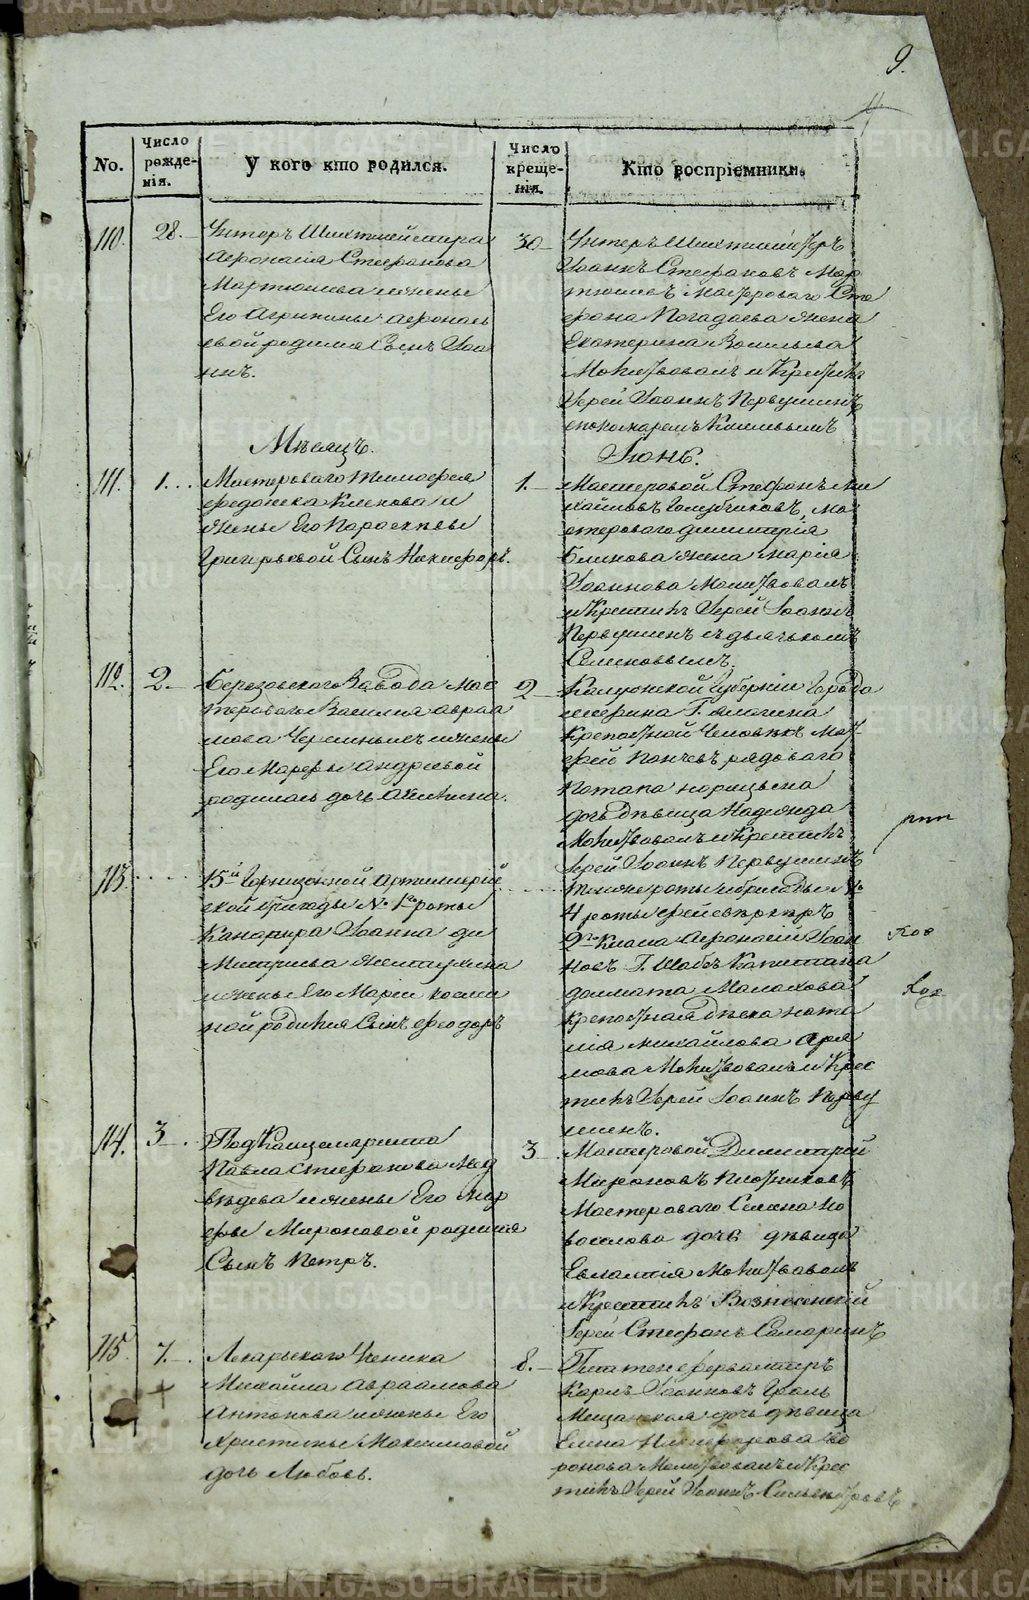 9.
No.
Число рожде-нія.
У кого кто родился.
Число креще-нія.
Кто воспріемники.
110.
28.
Унтеръ Шихтмейстера
Афонасія Стефанова
Мартюшева и жены
Его Агрипины Афонась
евой родился Сынъ Іоа
ннъ.
30
Унтеръ Шихтмейстеръ
Іоаннъ Стефановъ Мар
тюшевъ Мастероваго Сте
фана Погадаева жена
Екатерина Васильева
Молитвовалъ и Крестилъ
Іерей Іоаннъ Первушинъ
съ пономаремъ
Мѣсяцъ.
Іюнь.
111.
1.
Мастероваго Тимофея
Федотова и
жены Его Параскевы
Григорьевой Сынъ Никифоръ.
1.
Мастеровой Стефанъ Ми
хайловъ Голубчиковъ, ма
стероваго Димитрія
Блинова жена Марія
Іоаннова Молитвовалъ
и Крестилъ Іерей Іоаннъ
Первушинъ съ дьячькомъ
Семеновымъ.
112.
2.
Березовскаго Завода Мас
тероваго Василия Авраа
мова и жены
Его Марфы Андреевой
родилась дочь Акилина.
2
Калужской Губерніи Города
Г.
Крепостной Человѣкъ Мат
фей рядоваго
Потапа
дочь дѣвица Надежда
Молитвовалъ и Крестилъ
Іерей Іоаннъ Первушинъ
113.
15й Гарнизонной Артиллерій
ской бригады № 1й роты
Канонира Іоанна Ди
митриева
и жены Его Маріи Косми
ной родился Сынъ Феодоръ
тоже роты и бригады №
4 роты фейерверкеръ
2го Класа Афонасій Іоан
новъ Г. Штабъ Капитана
Далмата Малахова
крепостная дѣвка Ната
лія Михайлова
Молитвовалъ и Крес
тилъ Іерей Іоаннъ Перву
шинъ.
114.
3.
Подканцеляриста
Павла Стефанова Мед
вѣдева и жены Его Мар
фы Мироновой родился
Сынъ Петръ.
3
Мастеровой Димитрій
Мироновъ Плотниковъ
Мастероваго Семена Но
воселова дочь дѣвица
Евлампія Молитвовалъ
и Крестилъ Вознесенскій
Іерей Стефанъ Самаринъ
115.
7.
Лекарьскаго Ученика
Михайла Авраамова
Антонова и жены Его
Христины Максимовой
дочь Любовь.
8.
Карлъ Іоанновъ
Мещанская дочь дѣвица
Елена Никифорова Во
ронова Молитвовалъ и Крес
тилъ Іерей Іоаннъ Сильвестровъ
METRIKI.GASO-URAL.RU